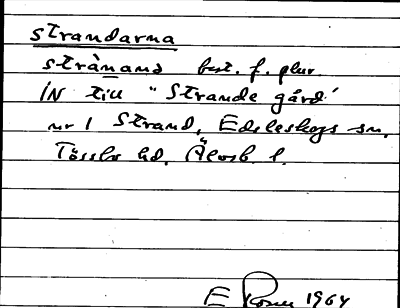 strandarna
strànana best. f. plur.
IN till "Strande gård"
nr 1 Strand, Edsleskogs sn.
Tössbo hd. Älvsb. l.
E 1964